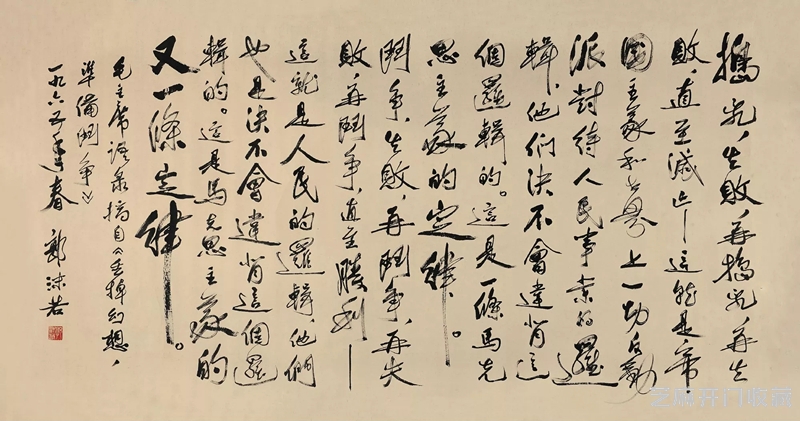 搗乱,失敗,再搗乱,再失
敗,直至滅亡—這就是帝
国主義和世界上一切反動
派對待人民事業的邏
輯,他們決不會違背這
個邏輯的。這是一條馬克
思主義的定律。
鬥争,失敗,再鬥争,再失
敗,再鬥争,直至勝利—
這就是人民的邏輯,他們
也是決不會違背這個邏
輯的。這是馬克思主義的
又一條定律。
毛主席語录摘自《丢掉幻想,
準備鬥争》
一九六五年春 郭沫若
芝麻开门收藏